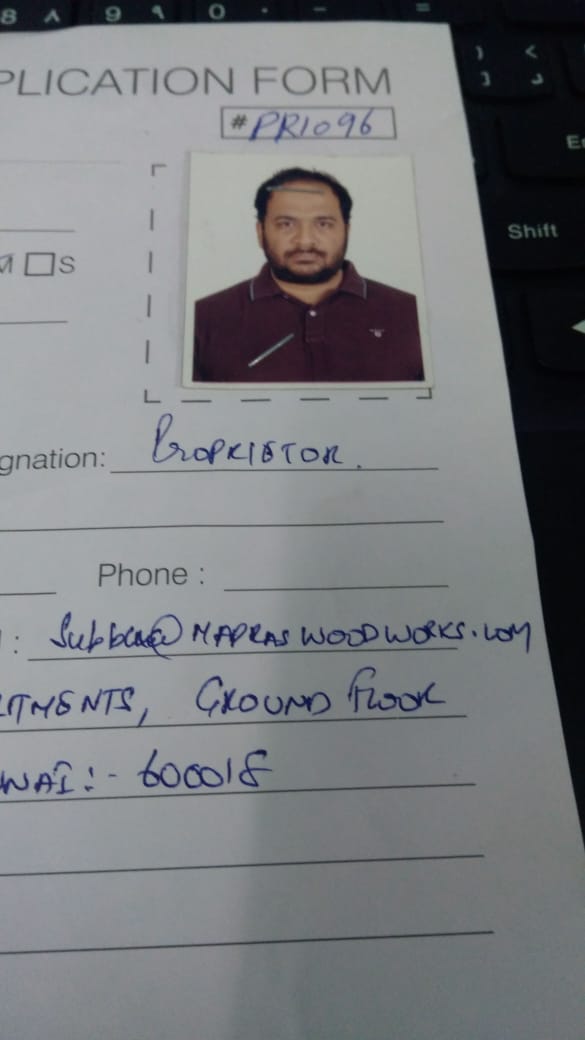 PLICATION FORM
# PR1096
M S
gnation: PROPRIETOR.
Phone :
: Subbu@MADRASWOODWORKS.COM
RTMENTS, GROUND FLOOR
NNAI:- 600018
Shift